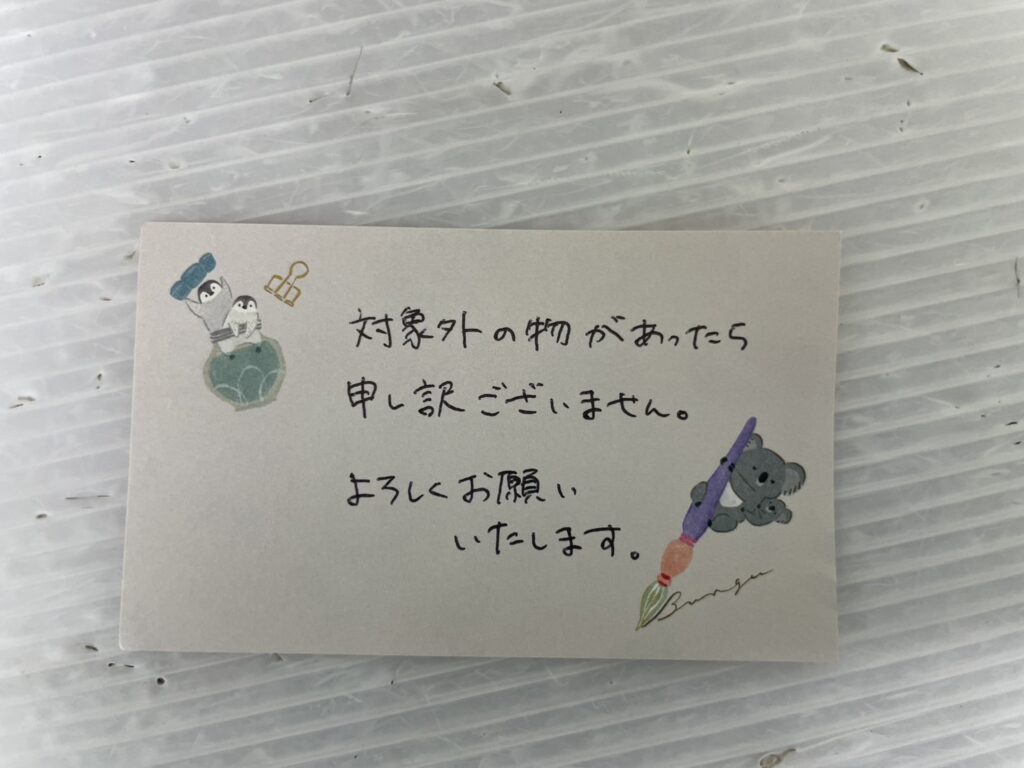 対象外の物があったら
申し訳ございません。
よろしくお願い
いたします。
Bungu